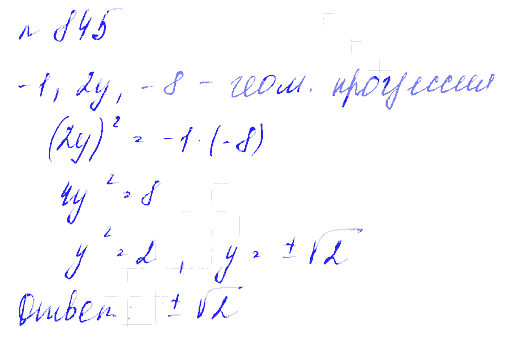 № 845
-1, 2y, -8 - геом. прогрессия
(2y)² = -1 · (-8)
4y² = 8
y² = 2, y = ±√2
Ответ: ±√2